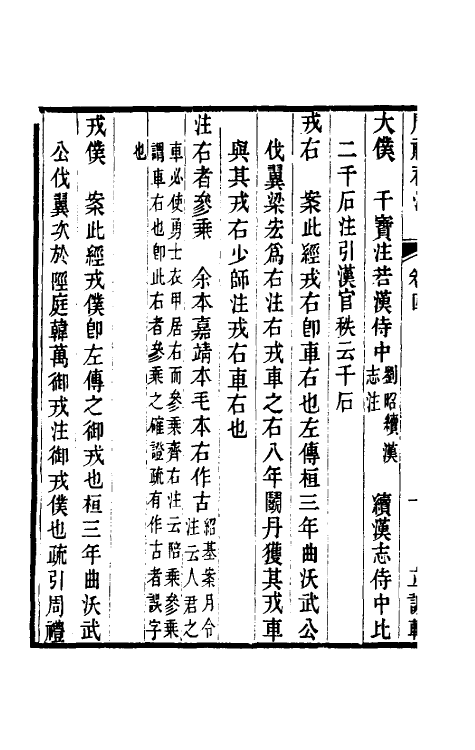 卷四
大僕　干寶注若漢侍中劉昭續漢志注　續漢志侍中比
二千石注引漢官秩云千石
戎右　案此經戎右卽車右也左傳桓三年曲沃武公
伐翼梁宏爲右注右戎車之右八年鬭丹獲其戎車
與其戎右少師注戎右車右也
注右者參乘　余本嘉靖本毛本右作古紹基案月令注云人君之
車必使勇士衣甲居右而參乘齊右注云陪乘參乘
謂車右也卽此右者參乘之確證疏有作古者誤字
也
戎僕　案此經戎僕卽左傳之御戎也桓三年曲沃武
公伐翼次於陘庭韓萬御戎注御戎僕也疏引周禮